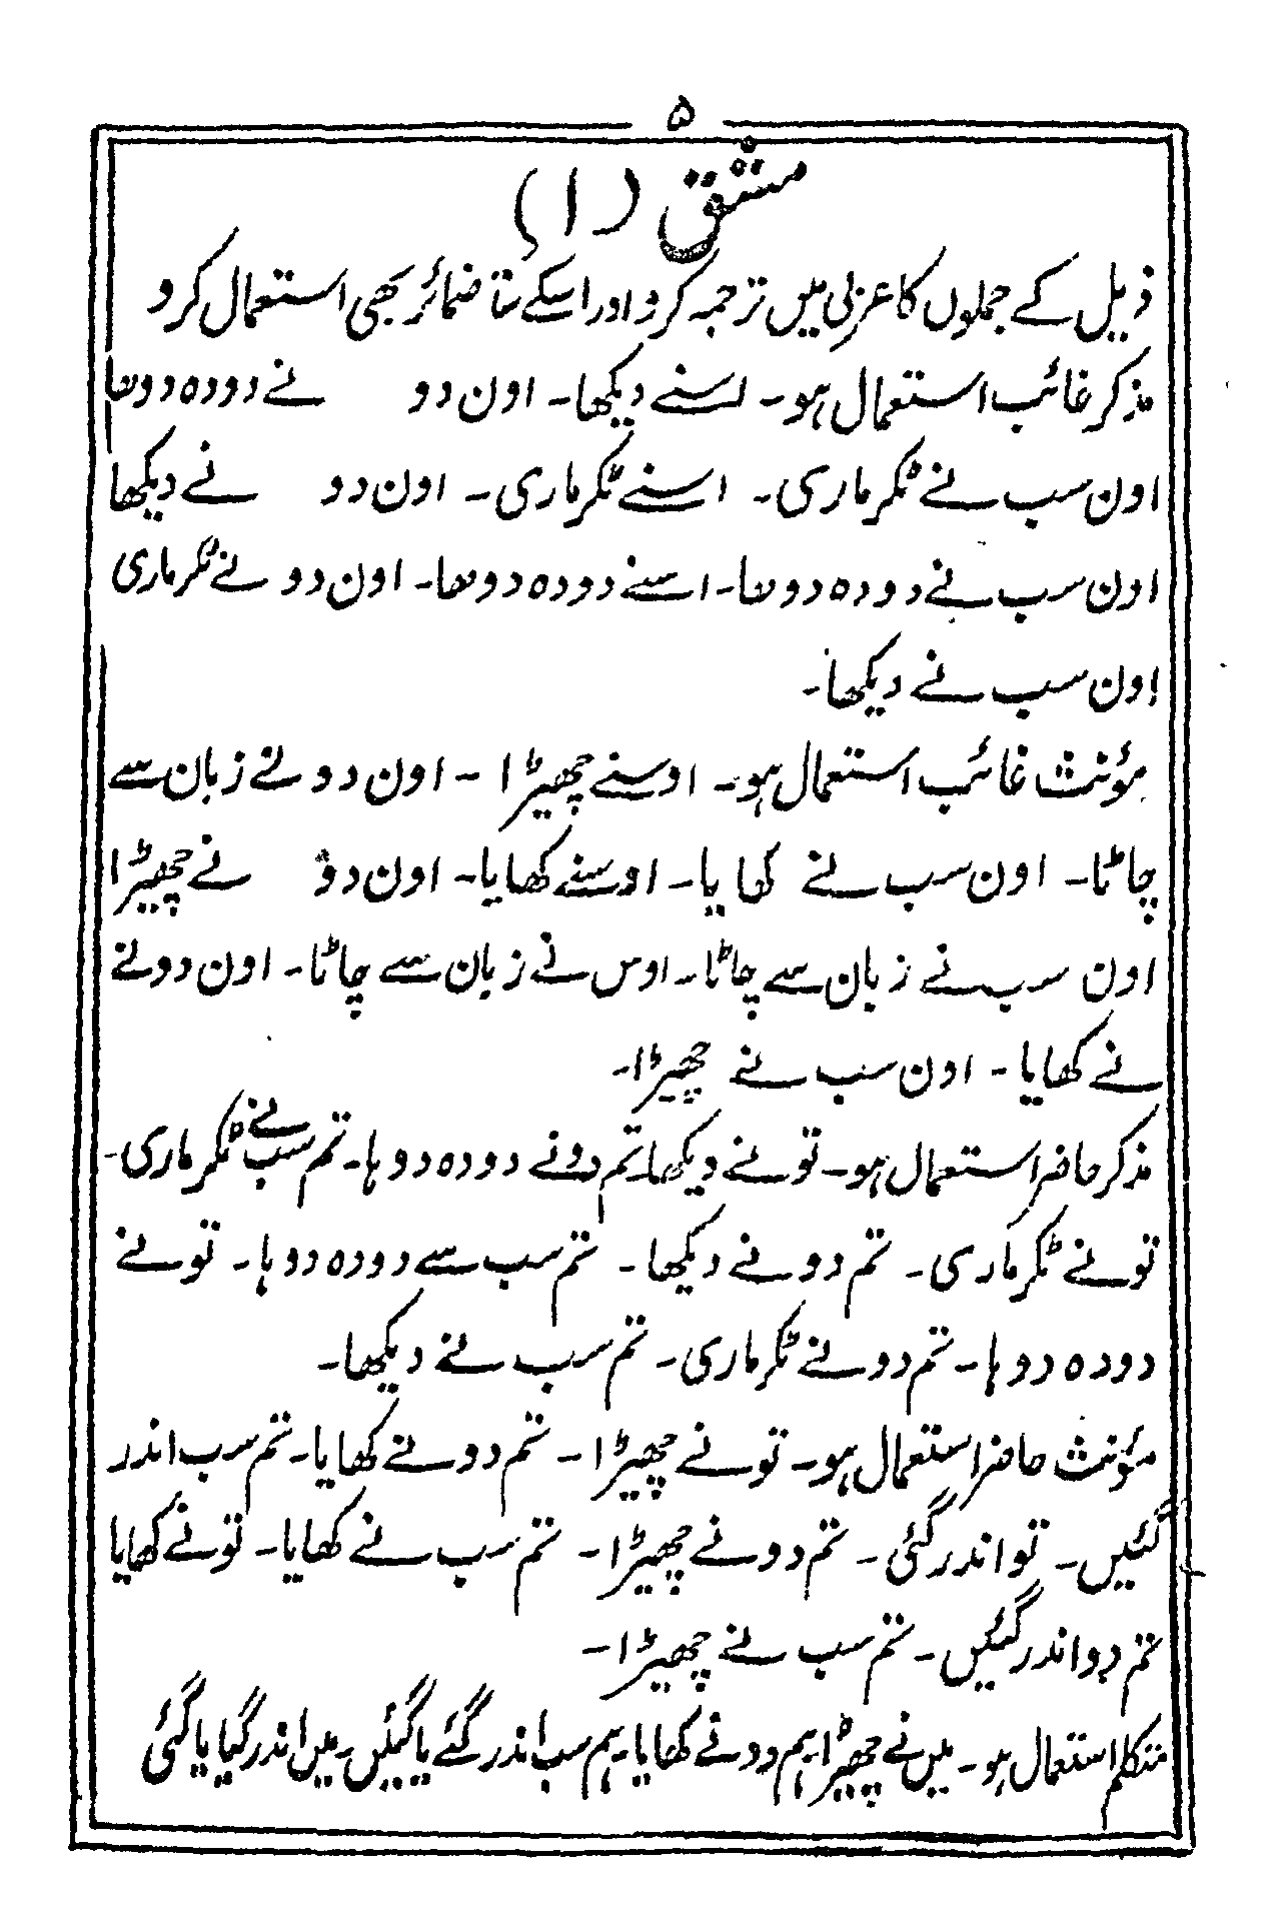 ۵
مشق (۱)
ذیل کے جملوں کا عربی میں ترجمہ کرو اور اسکے ساتھ ضمائر بھی استعمال کرو
مذکر غائب استعمال ہو۔ اسنے دیکھا۔ اون دو نے دودہ دوھا
اون سب نے ٹکر ماری۔ اسنے ٹکر ماری۔ اون دو نے دیکھا
اون سب نے دودہ دوھا۔ اسنے دودہ دوھا۔ اون دو نے ٹکر ماری
اون سب نے دیکھا۔
مؤنث غائب استعمال ہو۔ اوسنے چھیڑا ۔ اون دو نے زبان سے
چاٹا۔ اون سب نے کھایا۔ اوسنے کھایا۔ اون دو نے چھیڑا
اون سب نے زبان سے چاٹا۔ اوس نے زبان سے چاٹا۔ اون دونے
نے کھایا ۔ اون سب نے چھیڑا۔
مذکر حاضر استعمال ہو۔ تونے دیکھا۔ تم دونے دودہ دوہا۔ تم سب نے ٹکر ماری۔
تونے ٹکر ماری ۔ تم دونے دیکھا ۔ تم سب سے دودہ دوہا ۔ تونے
دودہ دوہا ۔ تم دونے ٹکر ماری ۔ تم سب نے دیکھا۔
مؤنث حاضر استعمال ہو۔ تونے چھیڑا ۔ تم دونے کھایا۔ تم سب اندر
گئیں۔ تو اندر گئی ۔ تم دونے چھیڑا ۔ تم سب نے کھایا۔ تونے کھایا
تم دو اندر گئیں ۔ تم سب نے چھیڑا ۔
متکلم استعمال ہو۔ میں نے چھیڑا ہم دونے کھایا۔ ہم سب اندر گئے یا گئیں۔ میں اندر گیا یا گئی